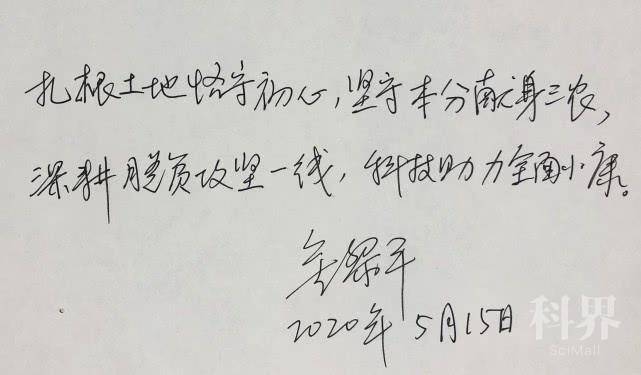 扎根土地恪守初心，坚守本分献身三农，
深耕脱贫攻坚一线，科技助力全面小康。
平
2020年5月15日
科界
SciMall